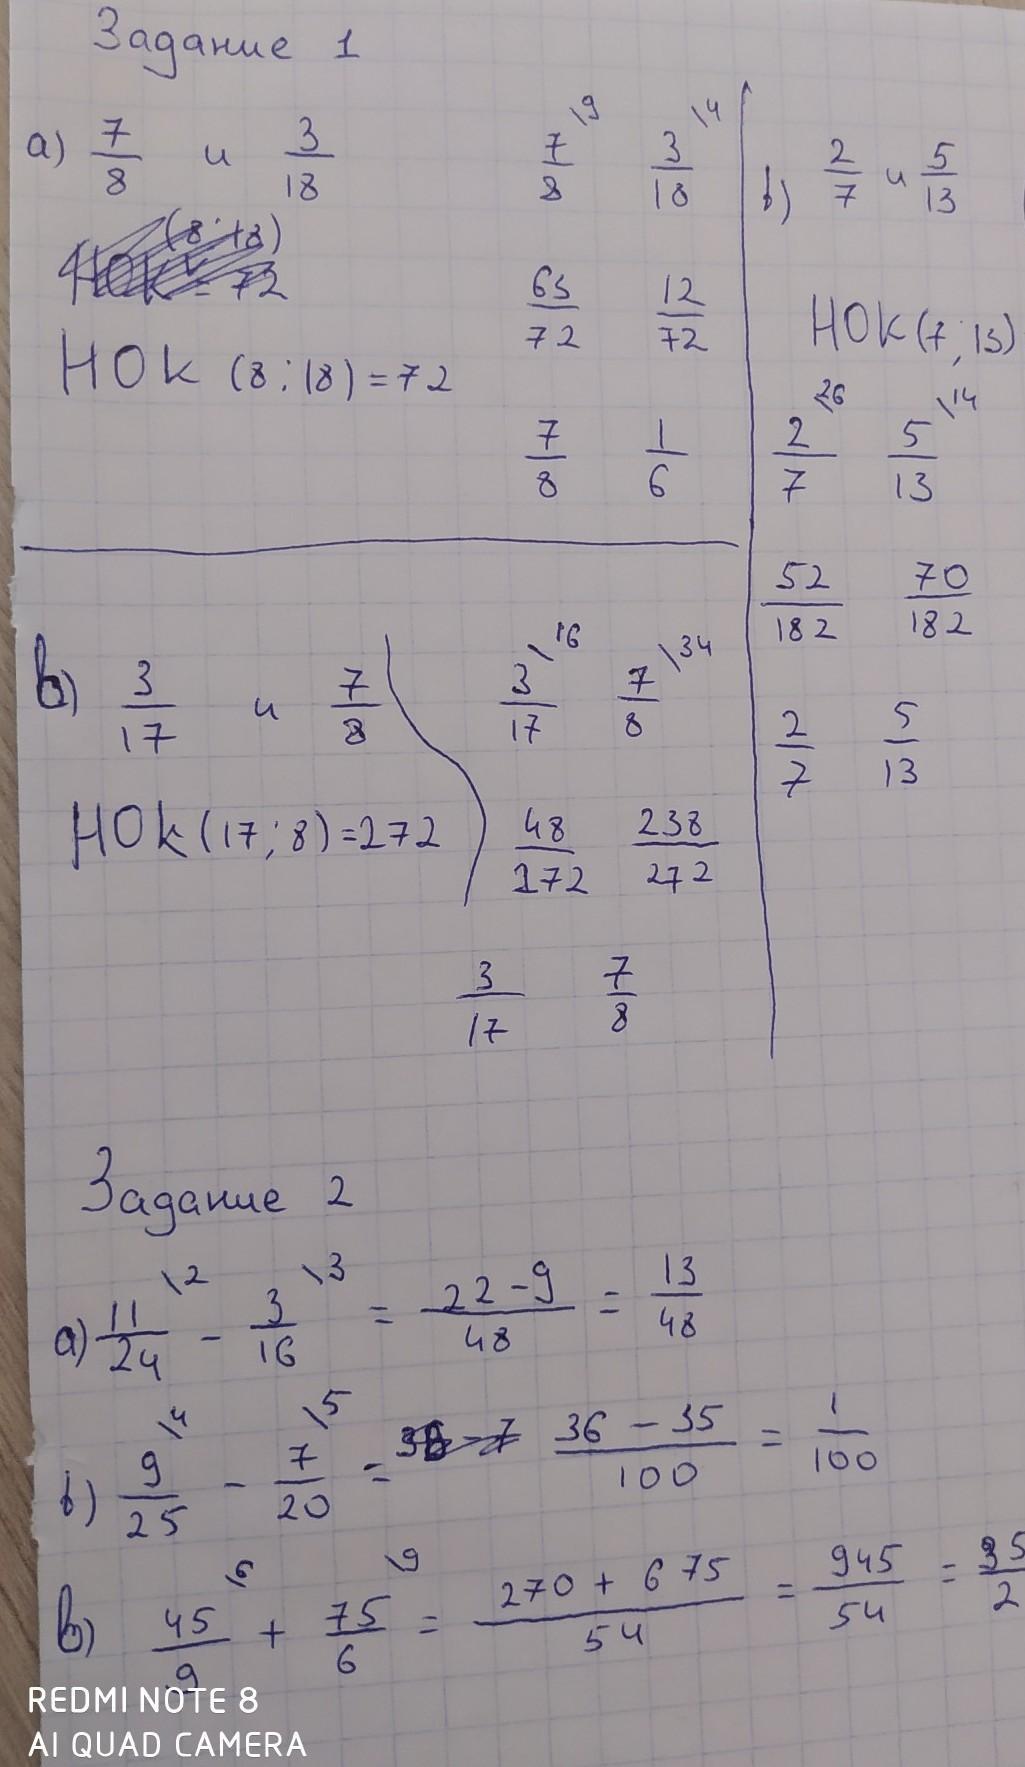 Задание 1
а) 7/8 и 3/18
НОК (8;18) = 72
НОК (8;18) = 72
7/8 \9 3/18 \4
63/72 12/72
7/8 1/6
b) 2/7 и 5/13
НОК (7;13)
2/7 \26 5/13 \14
52/182 70/182
2/7 5/13
в) 3/17 и 7/8
НОК (17;8) = 272
3/17 \16 7/8 \34
48/272 238/272
3/17 7/8
Задание 2
а) 11/24 \2 - 3/16 \3 = 22-9/48 = 13/48
b) 9/25 \4 - 7/20 \5 = 36 - 35/100 = 1/100
в) 45/9 \6 + 75/6 \9 = 270 + 675/54 = 945/54 = 35/2
REDMI NOTE 8
AI QUAD CAMERA